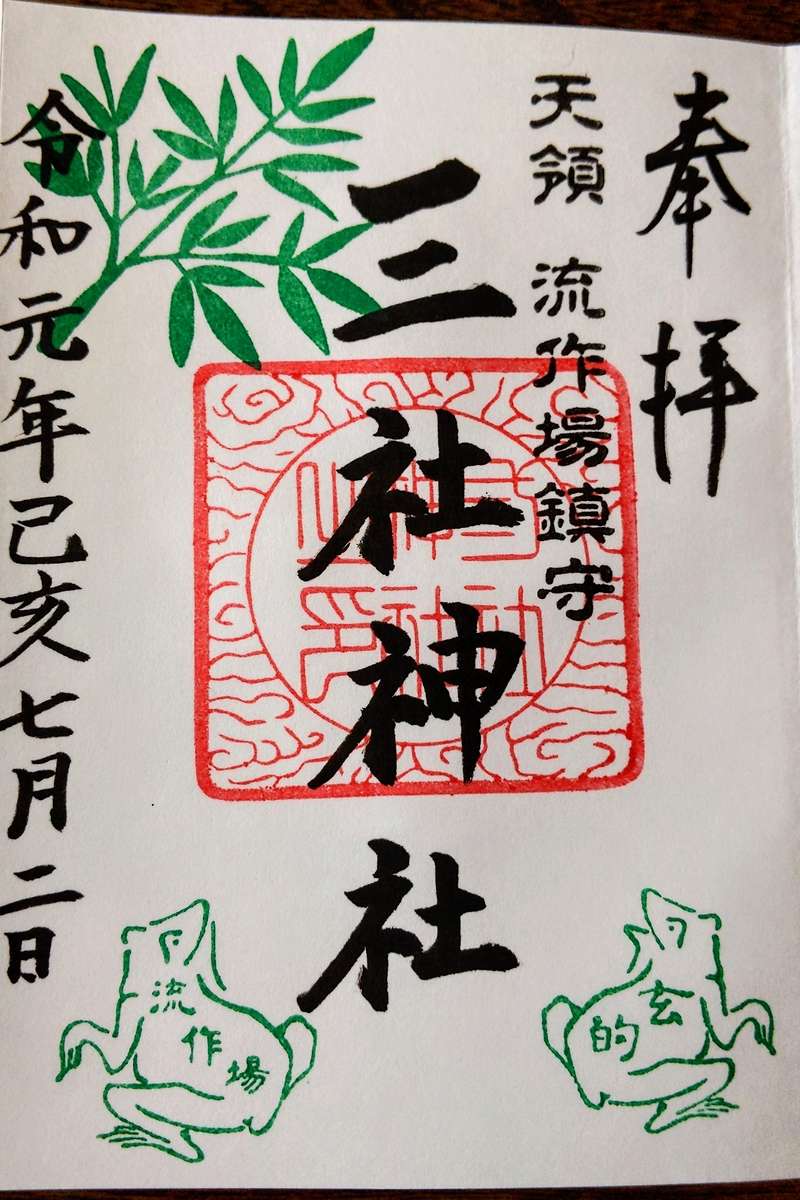 奉拝
天領 流作場鎮守
三社神社
令和元年己亥七月二日
三社神社之印
玄的
流作場